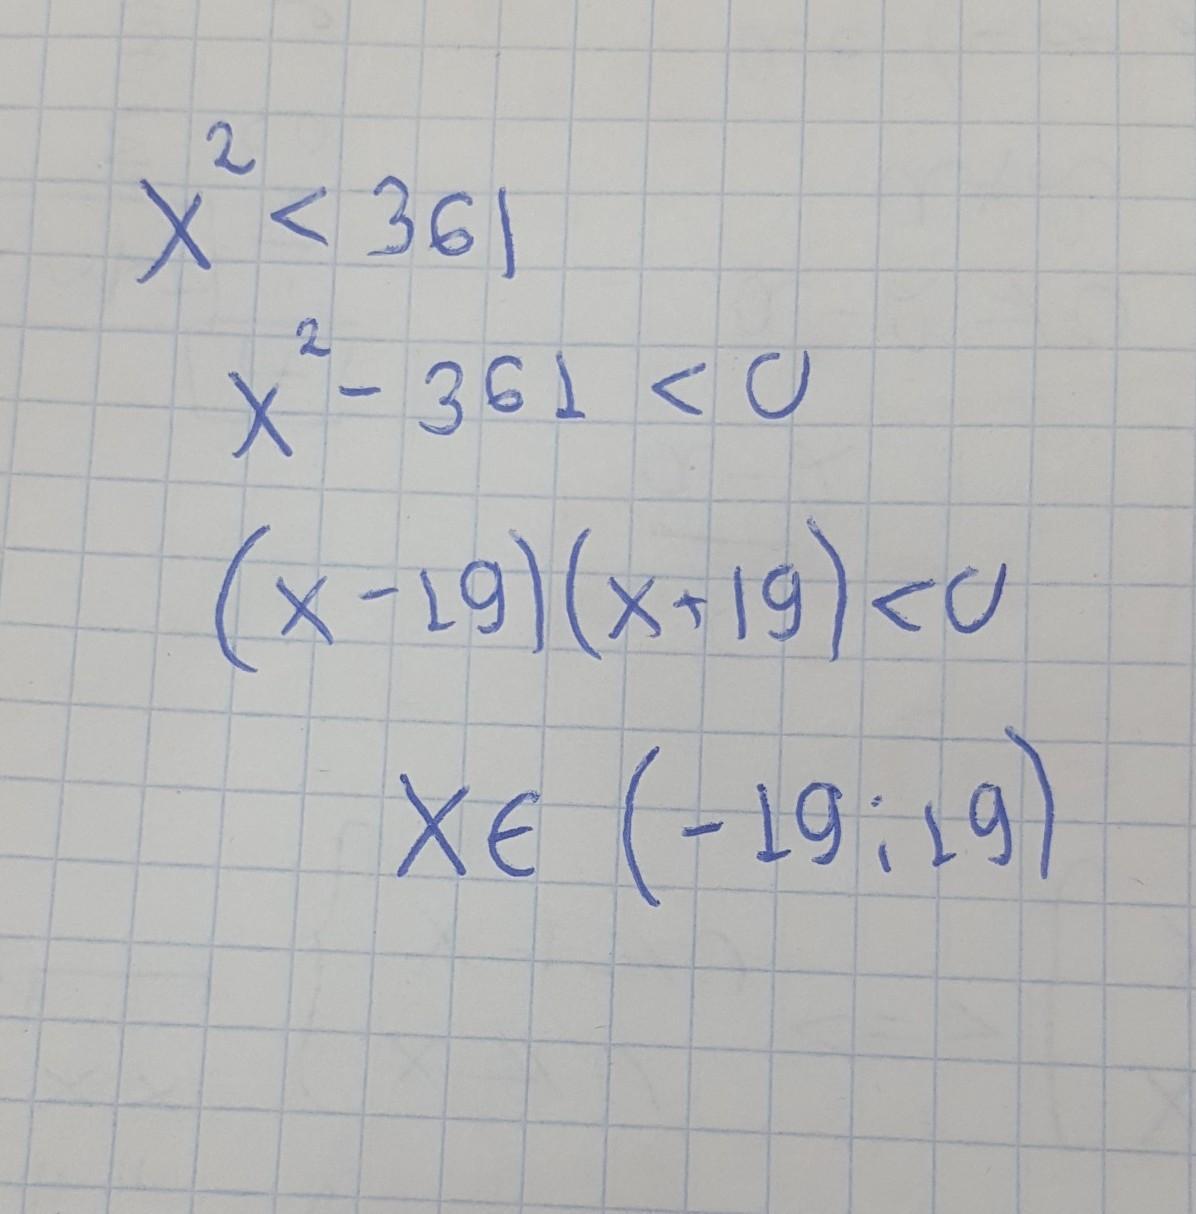 x² < 361
x² - 361 < 0
(x - 19)(x + 19) < 0
x ∈ (-19; 19)